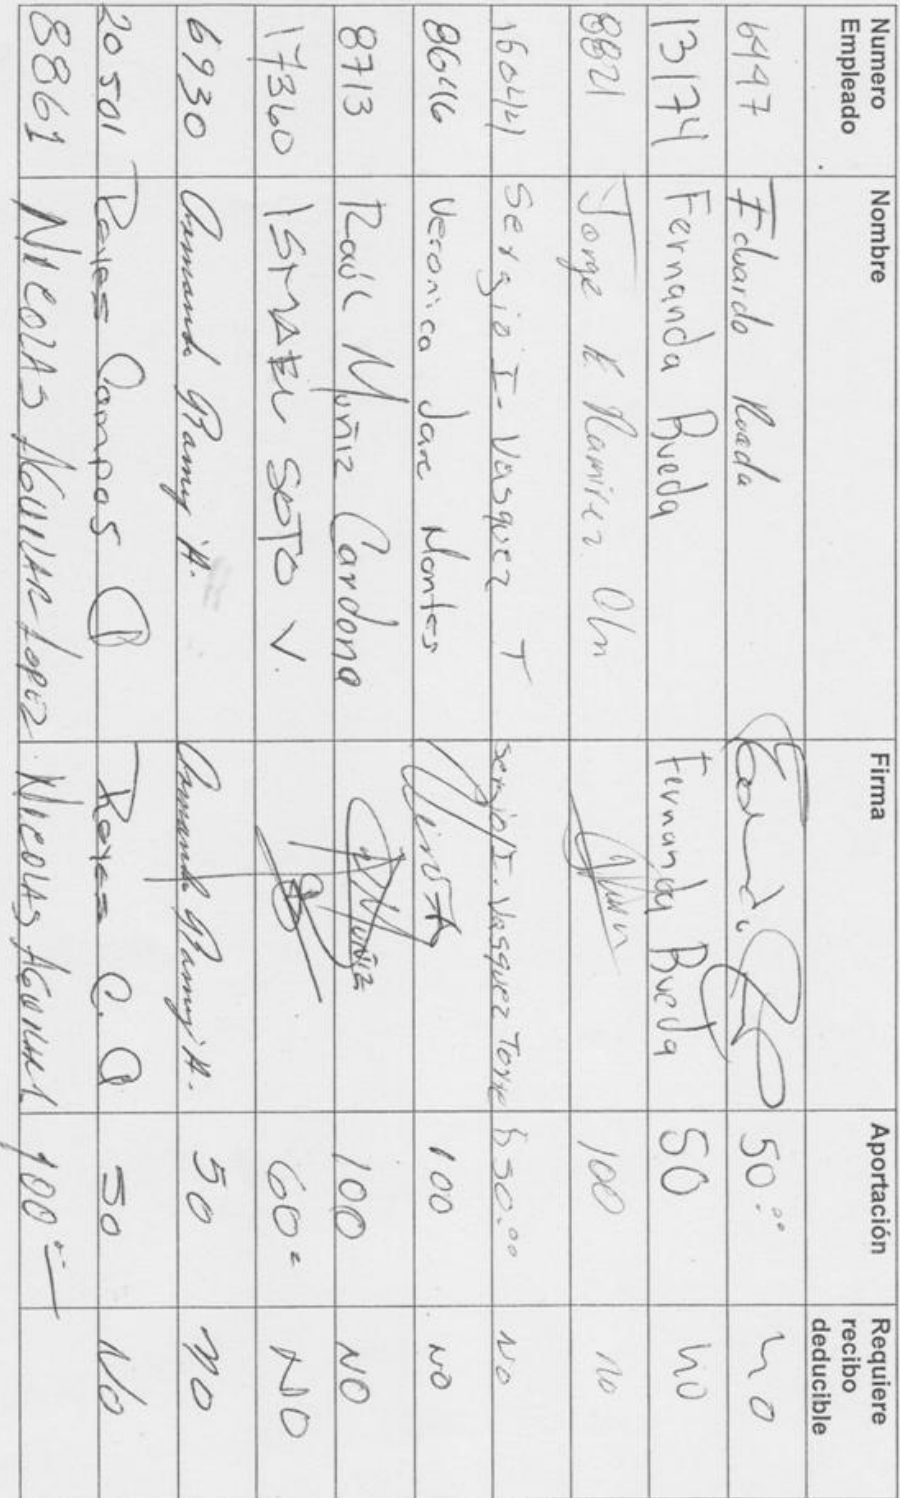 Numero Empleado Nombre Firma Aportación Requiere recibo deducible
6497 Eduardo Rueda 50.00 no
13174 Fernanda Rueda Fernanda Rueda 50 no
8821 Jorge R Ramirez Olv 100 no
16044 Sergio I. Vasquez T Sergio I. Vasquez Torre $ 50.00 No
8646 Veronica Jare Montes 100 NO
8713 Raúl Muñiz Cardona R Muñiz 100 NO
17360 ISMAEL SOTO V. 60 NO
6930 Armando H. Armando H. 50 NO
20501 Reyes Campos O Reyes C. O 50 No
8861 NICOLAS AGUILAR LOPEZ NICOLAS AGUILAR 100